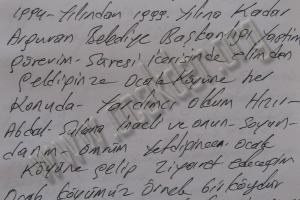 1994- Yılından 1999- Yılına Kadar
Arguvan Belediye Başkanlığı yaptım
Görevim- Süresi içerisinde elimden
Geldiğince Ocak Köyüne her
Konuda- Yardımcı oldum Hızır-
Abdal- Sultana inaeli ve onun- Soyun-
danım- ömrüm Yettiğince Ocak
Köyüne gelip ziyaret edeceğim
Ocak Köyümüz Örnek bir köydür